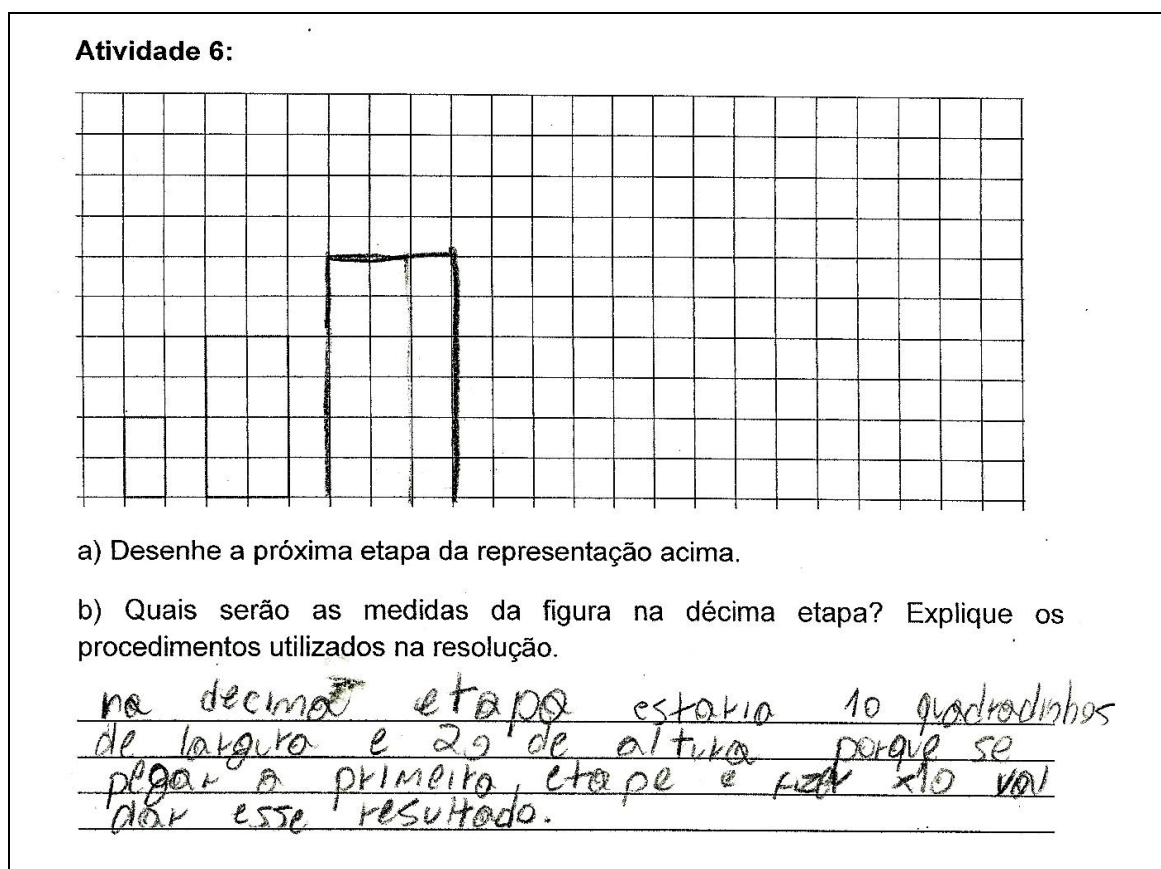 Atividade 6:
a) Desenhe a próxima etapa da representação acima.
b) Quais serão as medidas da figura na décima etapa? Explique os
procedimentos utilizados na resolução.
na decima etapa estaria 10 quadradinhos
de largura e 20 de altura porque se
pegar a primeira etape e fizer x10 vai
dar esse resultado.